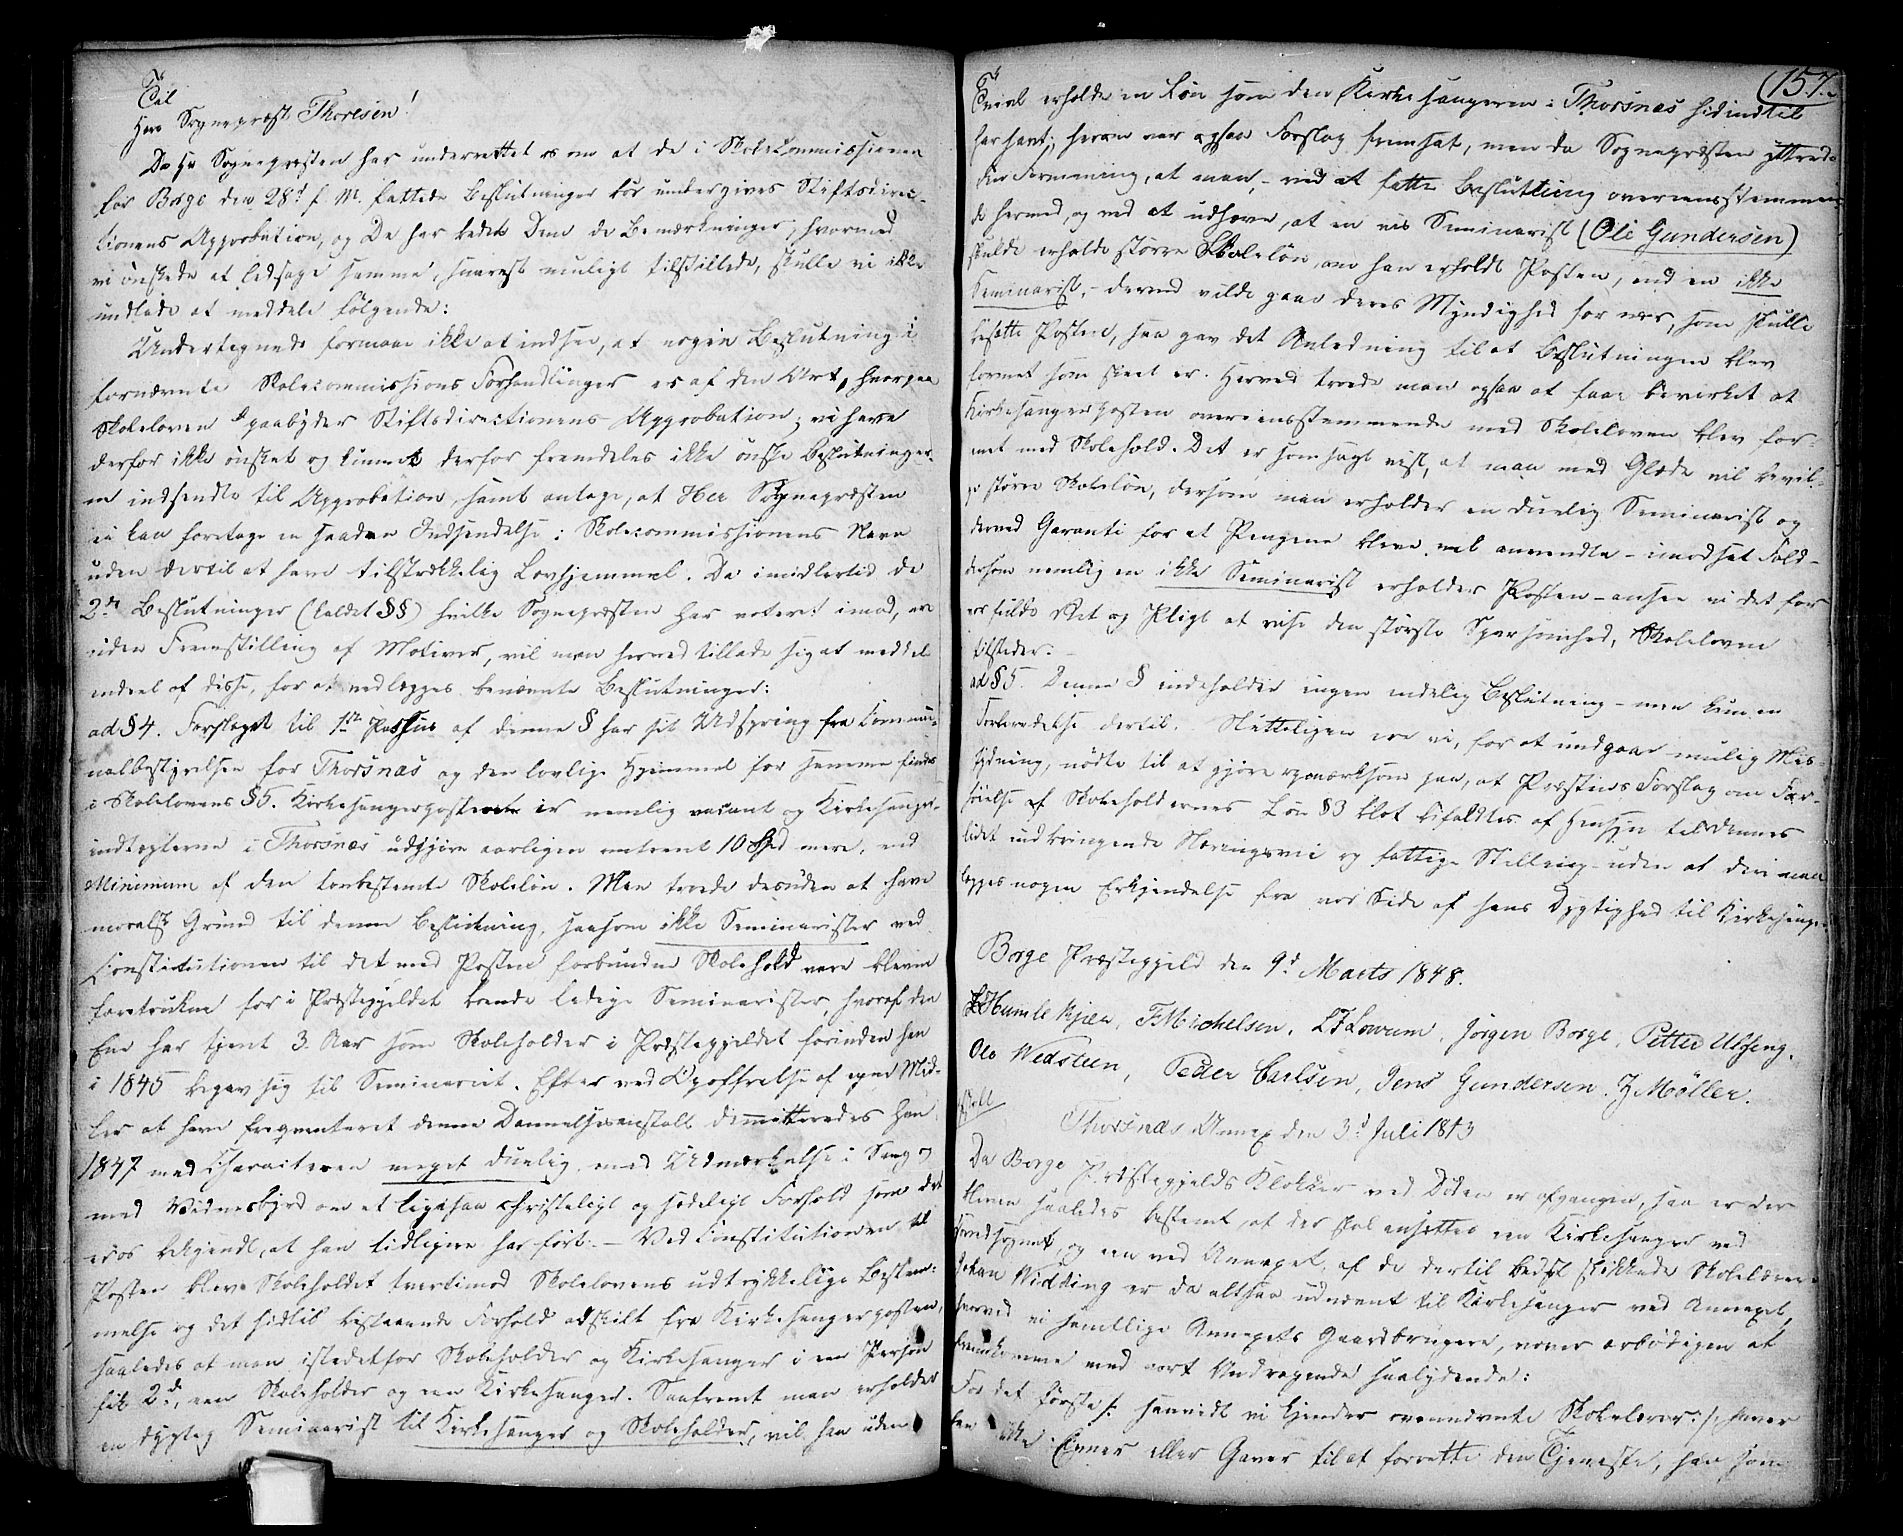 Til
Herr Sognepræst Thoresen!
Da Hr Sognepræsten har underrettet os om at de i Skolecommissionen
for Borge den 28d f. M. fattede Beslutninger bør undergives Stiftsdirec-
tionens Approbation, og De har bedet Dem de Bemærkninger, hvormed
vi ønskede at ledsage samme, snarest muligt tilstillede, skulle vi ikke
undlade at meddele følgende:
Undertegnede formaae ikke at indsee, at nogen Beslutning i
fornævnte Skolecommissions Forhandlinger er af den Art, hvorpaa
Skoleloven paabyder Stiftsdirectionens Approbation; vi have
derfor ikke ønsket og kunne derfor fremdeles ikke ønske Beslutninger-
ne indsendte til Approbation, samt antage, at Herr Sognepræsten
ei kan foretage en saadan Indsendelse i Skolecommissionens Navn
uden dertil at have tilstrækkelig Lovhjemmel. Da imidlertid de
2de Beslutninger (kaldet §§) hvilke Sognepræsten har voteret imod, ere
uden Fremstilling af Motiver, vil man herved tillade sig at meddele
endeel af disse, for at vedlægges benævnte Beslutninger:
ad § 4. Forslaget til 1ste Passus af denne § har sit Udspring fra Commu-
nalbestyrelsen for Thorsnæs og den lovlige Hjemmel for samme findes
i Skolelovens § 5. Kirkesangerposten er nemlig vacant og Kirkesanger-
indtægterne i Thorsnæs udgjøre aarligen omtrent 10 Spd mere, end
Minimum af den lovbestemte Skoleløn. Man troede desuden at have
moralsk Grund til denne Beslutning, saasom ikke Seminarister ved
Constitutionen til det med Posten forbundne Skolehold vare blevne
foretrukne for i Præstegjeldet boende ledige Seminarister, hvoraf den
Ene har tjent 3 Aar som Skoleholder i Præstegjeldet forinden han
i 1845 begav sig til Seminariet. Efter ved Opoffrelse af egne Mid-
ler at have frequenteret denne Dannelsesanstalt dimitteredes han
1847 med Characteren meget duelig, med Udmærkelse i Sang og
med Vidnesbyrd om et ligesaa christeligt og sædeligt Forhold som det
er os bekjendt, at han tidligere har ført. – Ved Constitutionen til
Posten bleve Skoleholdet tvertimod Skolelovens udtrykkelige Bestem-
melse og det hidtil bestaaende Forhold adskilt fra Kirkesangerposten,
saaledes at man istedetfor Skoleholder og Kirkesanger i een Person
fik 2de, een Skoleholder og een Kirkesanger. Saafremt man erholder
en dygtig Seminarist til Kirkesanger og Skoleholder, vil han uden
157.
Tvivl erholde en Løn som den Kirkesangeren i Thorsnæs hidindtil
har havt; herom var ogsaa Forslag fremsat, men da Sognepræsten yttrede
den Formening, at man, – ved at fatte Beslutning overeensstemmen-
de hermed, og ved at udhæve, at en vis Seminarist (Ole Gundersen)
skulde erholde større Skoleløn, om han erholdt Posten, end en ikke
Seminarist, – derved vilde gaae deres Myndighed for nær, som skulle
besætte Posten, saa gav det Anledning til at Beslutningen blev
formet som skeet er. Herved troede man ogsaa at faae bevirket at
Kirkesangerposten overeensstemmende med Skoleloven blev for-
enet med Skolehold. Det er som sagt vist, at man med Glæde vil bevil-
ge større Skoleløn, dersom man erholder en duelig Seminarist og
derved Garanti for at Pengene bleve vel anvendte – i modsat Fald –
dersom nemlig en ikke Seminarist erholder Posten – ansee vi det for
vor fulde Ret og Pligt at vise den største Sparsomhed, Skoleloven
tilsteder. –
ad § 5. Denne § indeholder ingen endelig Beslutning – men kun en
Forberedelse dertil. Slutteligen ere vi, for at undgaae mulig Mis-
tydning, nødte til at gjøre opmærksom paa, at Præstens Forslag om For-
høielse af Skoleholdernes Løn § 3 blot bifaldtes af Hensyn til dennes
lidet indbringende Næringsvei og fattige Stilling – uden at deri maa
lægges nogen Erkjendelse fra vor Side af hans Dygtighed til Kirkesanger.
Borge Præstegjeld den 9d Marts 1848.
Humlekjær, F Michelsen. L F Lowum, Jørgen Borge, Petter Ulfseng.
Ole Wedsteen, Peder Carlsen, Jens Gundersen. J Møller.
Thorsnæs Annex den 3d Juli 1813
Da Borge Præstegjelds Klokker ved Døden er afgangen, saa er der
bleven saaledes bestemt, at der skal ansættes een Kirkesanger ved
Hovedsognet, og een ved Annexet, af de dertil bedst skikkede Skolelærere.
Johan Widding er da altsaa udnævnt til Kirkesanger ved Annexet,
hvorved vi samtlige Annexets Gaardbrugere, vover ærbødigen at
fremkomme med vort Andragende saalydende:
For det første /: saavidt vi kjender ovennævnte Skolelærer :/ haver
han ikke Evner eller Gaver til at forrette den Tjeneste, han som